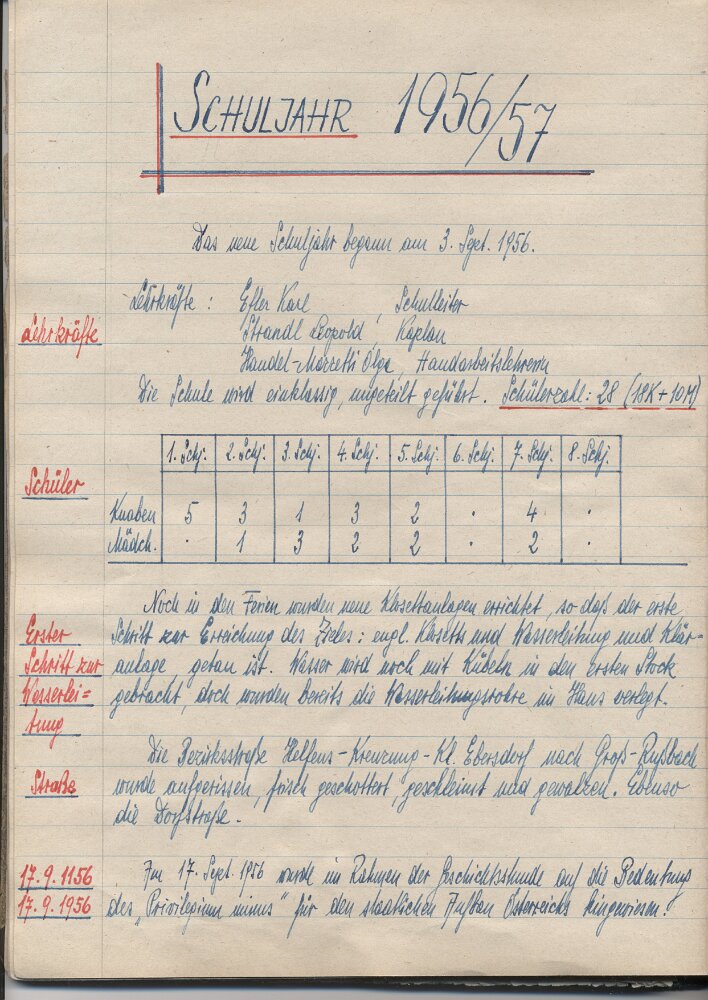 SCHULJAHR 1956/57
Das neue Schuljahr begann am 3. Sept. 1956.
Lehrkräfte
Lehrkräfte : Efler Karl , Schulleiter
Strandl Leopold , Kaplan
Handel-Marzetti Olga, Handarbeitslehrerin
Die Schule wird einklassig, ungeteilt geführt. Schülerzahl: 28 (18K+10M)
Schüler
1. Schj. 2. Schj. 3. Schj. 4. Schj. 5. Schj. 6. Schj. 7. Schj. 8. Schj.
Knaben 5 3 1 3 2 . 4 .
Mädch. . 1 3 2 2 . 2 .
Erster
Schritt zur
Wasserlei=
tung
Noch in den Ferien wurden neue Klosettanlagen errichtet, so daß der erste
Schritt zur Erreichung des Zieles: engl. Klosetts und Wasserleitung und Klär-
anlage getan ist. Wasser wird noch mit Kübeln in den ersten Stock
gebracht, doch wurden bereits die Wasserleitungsrohre im Haus verlegt.
Straße
Die Bezirksstraße Helfens-Kreuzung-Kl. Ebersdorf nach Groß-Rußbach
wurde aufgerissen, frisch geschottert, geschlemmt und gewalzen. Ebenso
die Dorfstraße.
17.9.1156
17.9.1956
Am 17. Sept. 1956 wurde im Rahmen der Geschichtsstunde auf die Bedeutung
des „Privilegium minus" für den staatlichen Aufbau Österreichs hingewiesen.